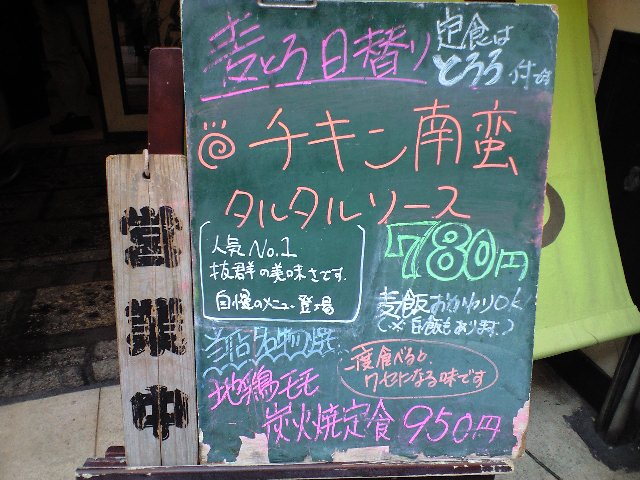 麦とろ日替り
定食は
とろろ
付です
チキン南蛮
タルタルソース
人気No.1
抜群の美味さです.
自慢のメニュー登場
780円
麦飯おかわりOK!
(※白飯もあります.)
当店名物
二度食べると
クセになる味です
地鶏モモ
炭火焼定食 950円
営業中